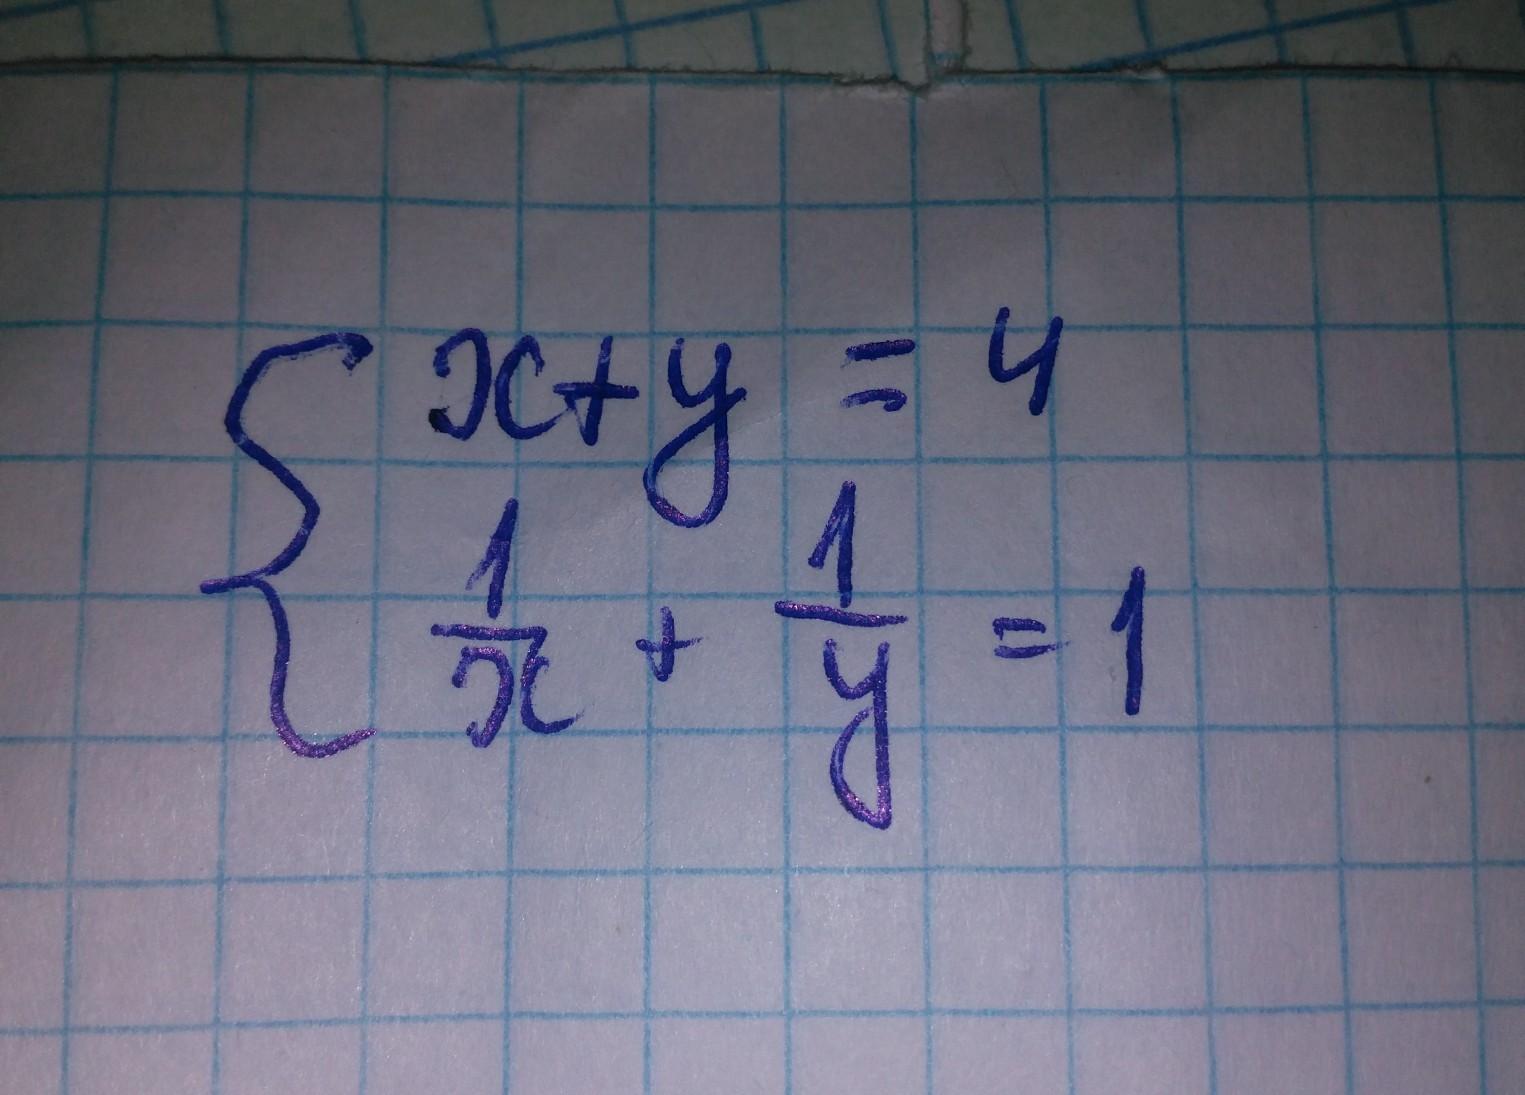 x+y = 4
1/x + 1/y = 1